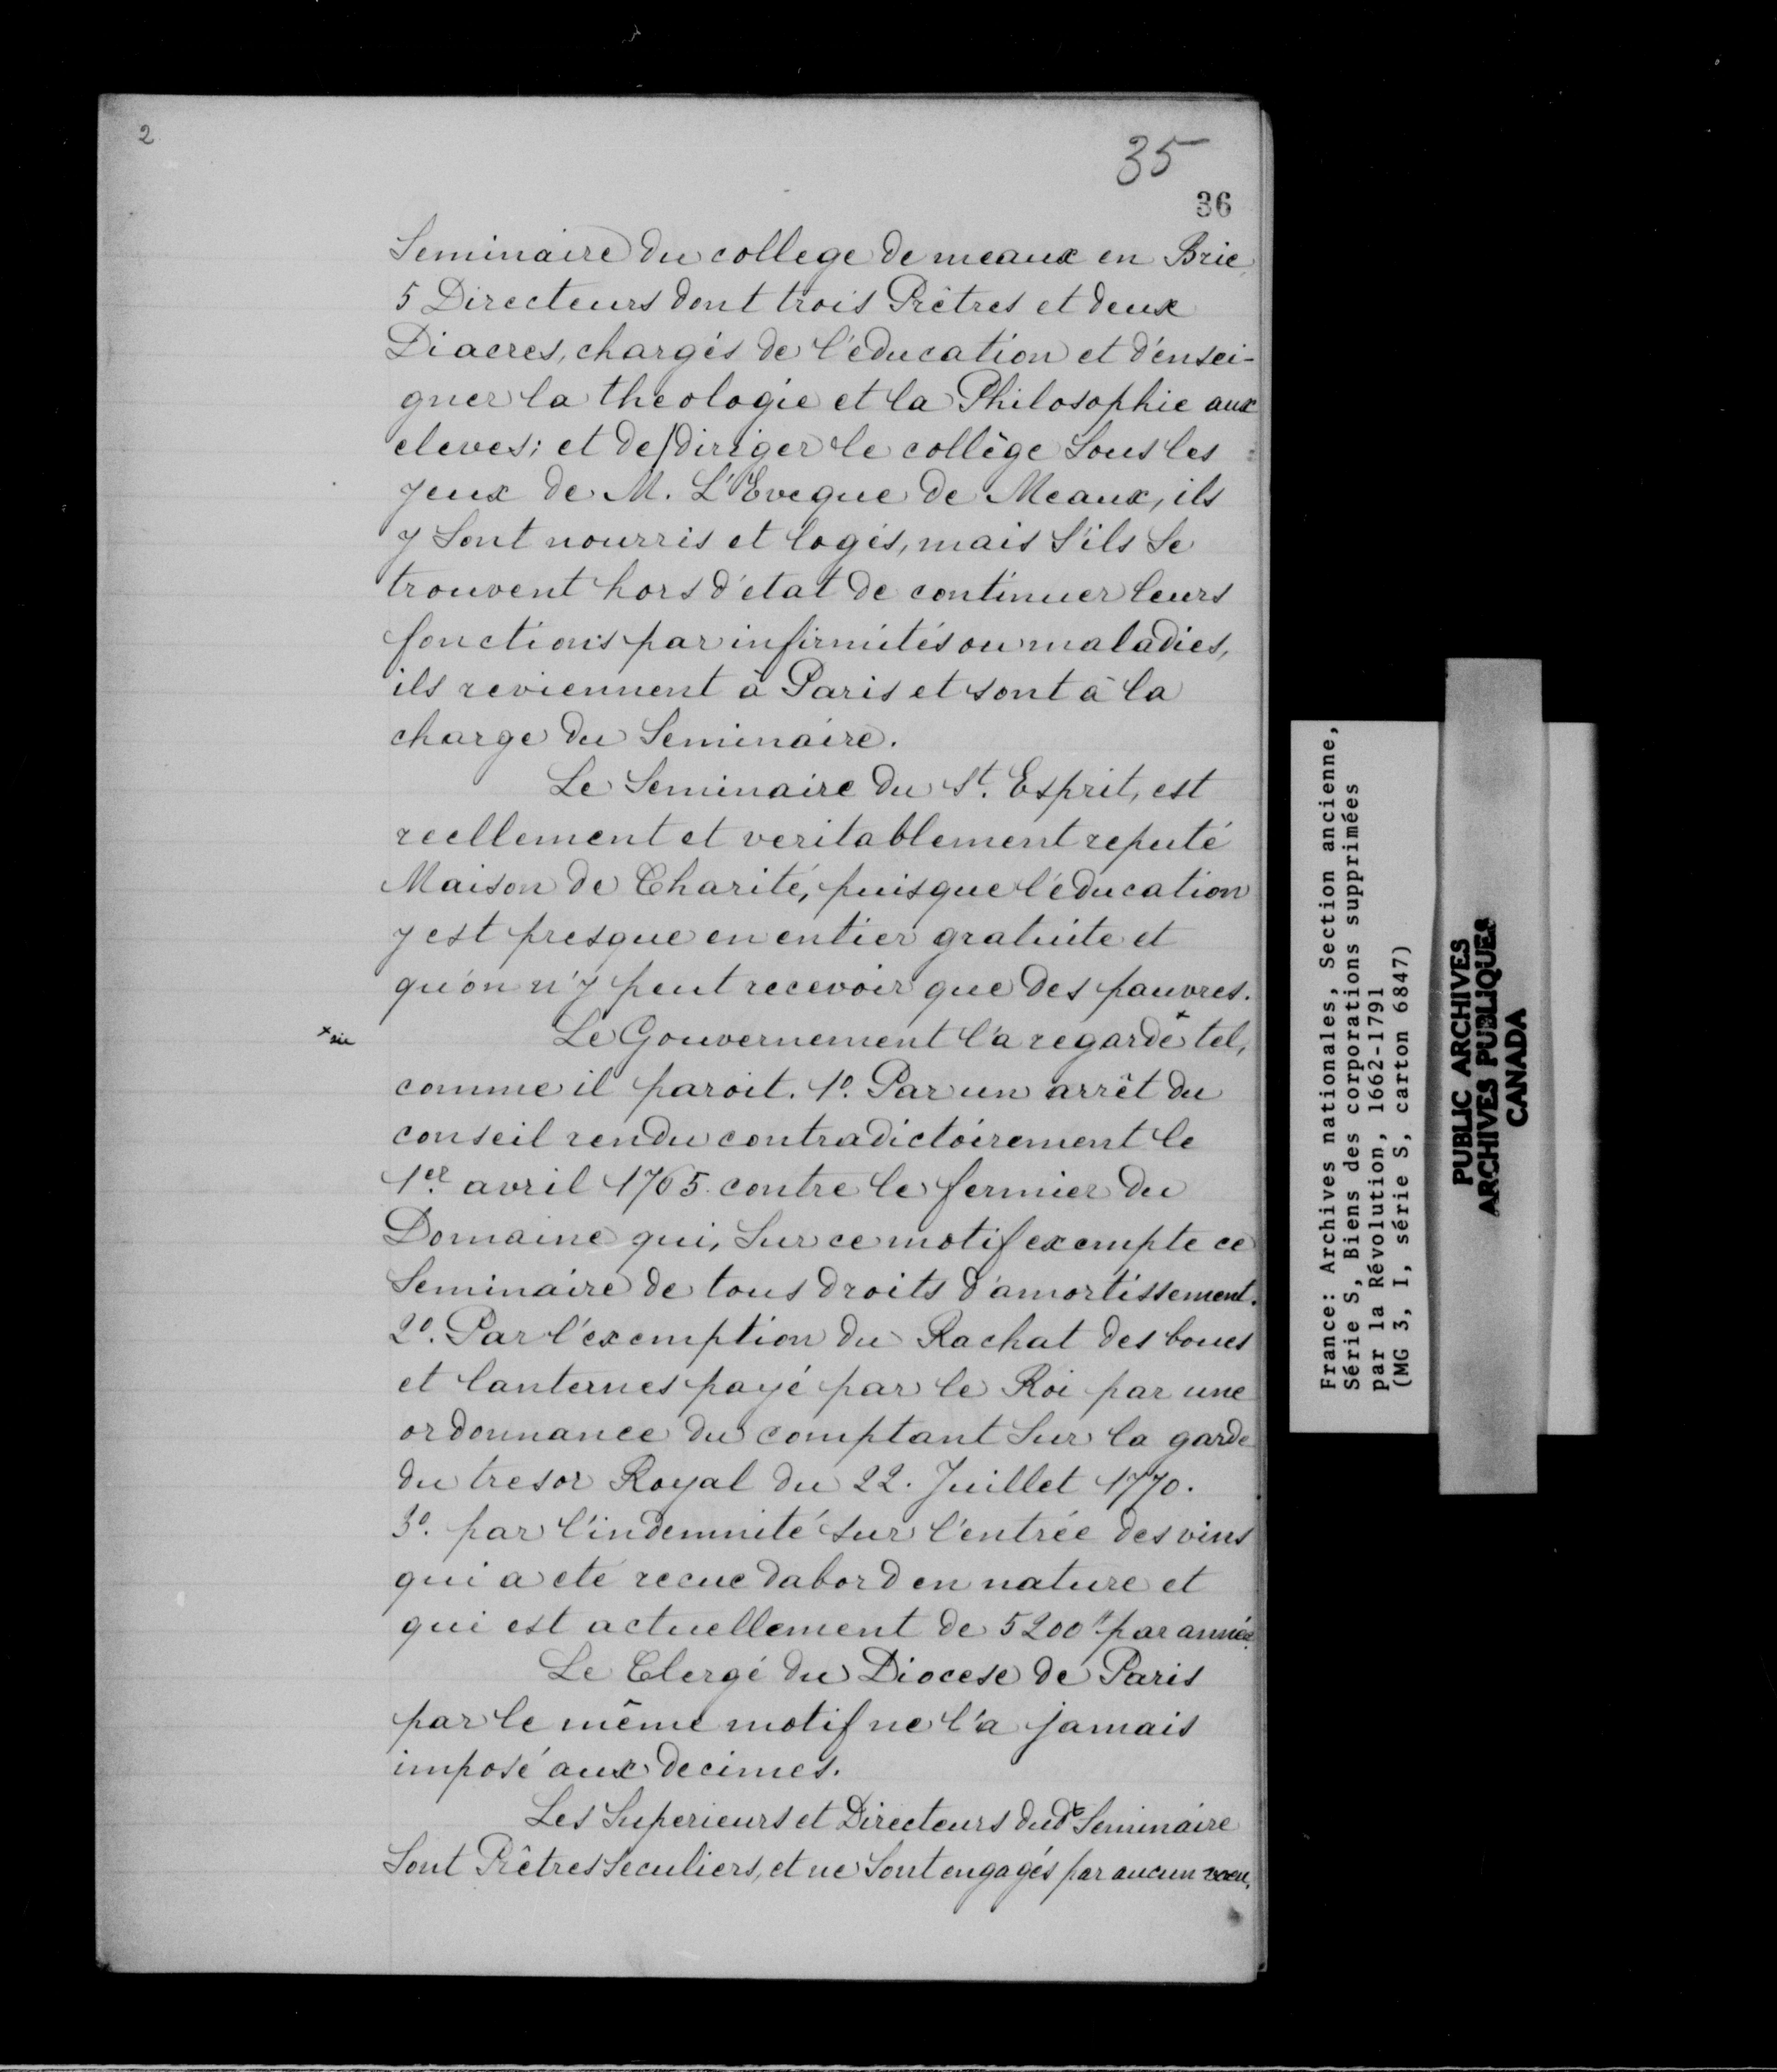 2
35
36
Seminaire du college de meaux en Brie,
5 Directeurs dont trois Prêtres et deux
Diacres, chargés de l'éducation et d'ensei-
gner la theologie et la Philosophie aux
eleves; et de diriger le collège Sous les
yeux de M. L'Eveque de Meaux, ils
y Sont nourris et logés, mais S'ils Se
trouvent hors d'état de continuer leurs
fonctions par infirmités ou maladies,
ils reviennent à Paris et sont à la
charge du Seminaire.
Le Seminaire du St. Esprit, est
reellement et veritablement reputé
Maison de Charité, puisque l'éducation
y est presque en entier gratuite et
qu'on n'y peut recevoir que des pauvres.
Le Gouvernement l'a regardé* tel,
*sic
comme il paroit. 1º. Par un arrêt du
conseil rendu contradictoirement le
1er. avril 1765. contre le fermier du
Domaine qui, Sur ce motif exempte ce
Seminaire de tous droits d'amortissement.
2º. Par l'exemption du Rachat des boues
et lanternes payé par le Roi par une
ordonnance du comptant Sur la garde
du tresor Royal du 22. Juillet 1770.
3º. par l'indemnité sur l'entrée des vins
qui a eté recue dabord en nature et
qui est actuellement de 5200# par année.
Le Clergé du Diocese de Paris
par le même motif ne l'a jamais
imposé aux decimes.
Les Superieurs et Directeurs dudt Seminaire
Sont Prêtres Seculiers, et ne Sont engagés par aucun voeu,
France: Archives nationales, Section ancienne,
Série S, Biens des corporations supprimées
par la Révolution, 1662-1791
(MG 3, I, série S, carton 6847)
PUBLIC ARCHIVES
ARCHIVES PUBLIQUES
CANADA